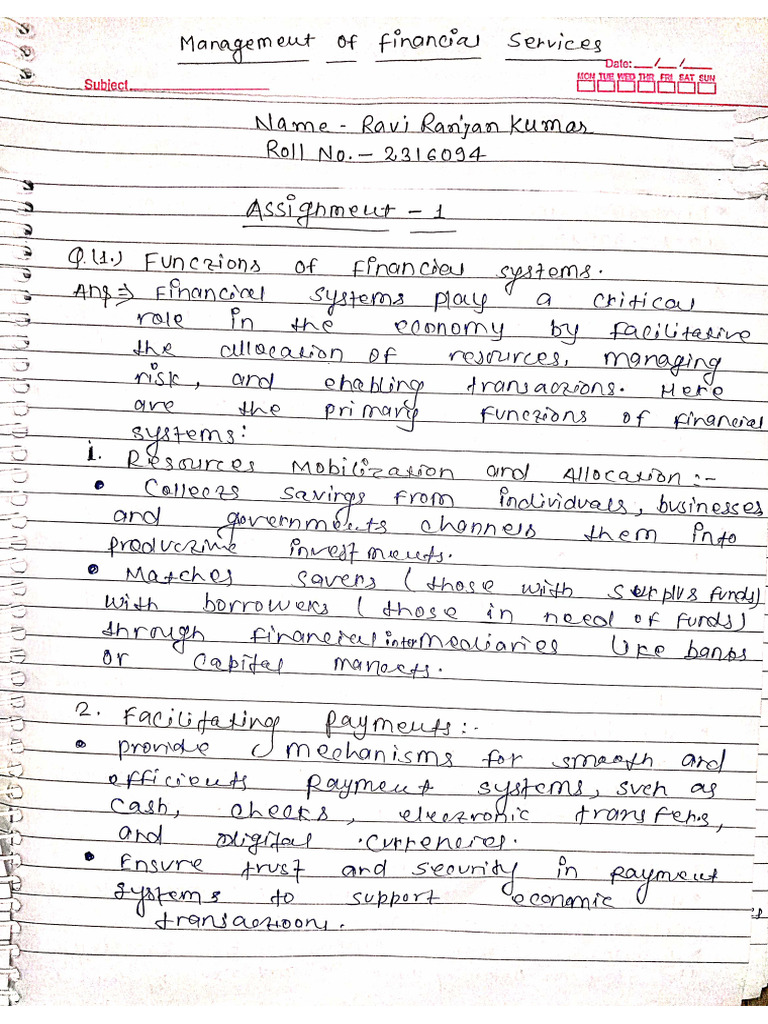 Management of financial Services
Date: __/__/__
MON TUE WED THR FRI SAT SUN
Subject
Name - Ravi Ranjan Kumar
Roll No. - 2316094
Assignment - 1
Q.(1.) Functions of financial systems.
Ans ⇒ Financial systems play a critical
role in the economy by facilitative
the allocation of resources, managing
risk, and enabling transactions. Here
are the primary functions of financial
systems:
i. Resources Mobilization and Allocation :-
• Collects savings from individuals, businesses
and governments channels them into
productive investments.
• Matches savers (those with surplus funds)
with borrowers (those in need of funds)
through financial intermediaries like banks
or capital markets.
2. Facilitating payments :-
• provide mechanisms for smooth and
efficients payment systems, such as
cash, checks, electronic transfers,
and digital currencies.
• Ensure trust and security in payment
systems to support economic
transactions.